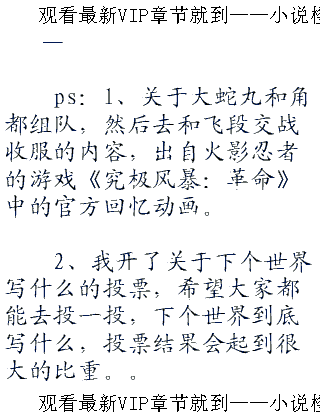 观看最新VIP章节就到——小说
—
ps：1、关于大蛇丸和角
都组队，然后去和飞段交战
收服的内容，出自火影忍者
的游戏《究极风暴：革命》
中的官方回忆动画。
2、我开了关于下个世界
写什么的投票，希望大家都
能去投一投，下个世界到底
写什么，投票结果会起到很
大的比重。。
观看最新VIP章节就到——小说